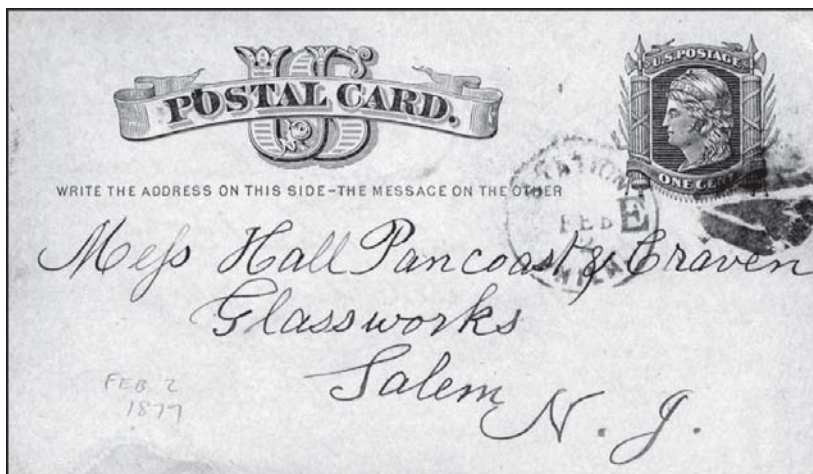 US
POSTAL CARD.
U.S. POSTAGE
ONE CENT
WRITE THE ADDRESS ON THIS SIDE-THE MESSAGE ON THE OTHER
STATION
FEB E
PHILA
Mess Hall Pancoast & Craven
Glassworks
Salem
N. J.
FEB 2
1877